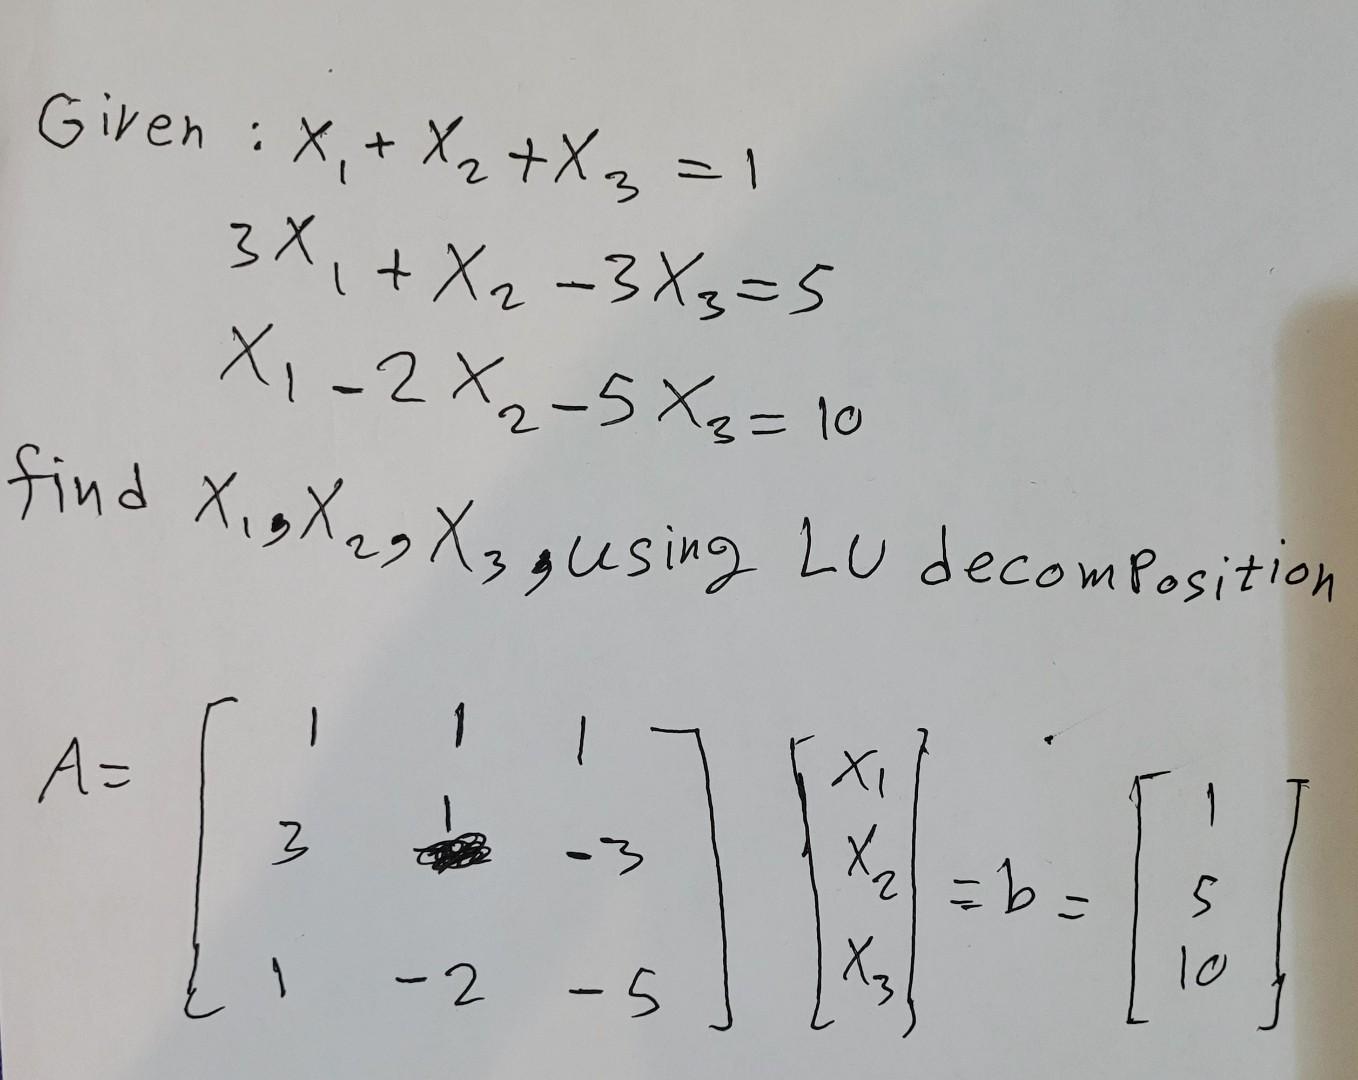 Given : X₁ + X₂ + X₃ = 1
3X₁ + X₂ - 3X₃ = 5
X₁ - 2X₂ - 5X₃ = 10
find X₁, X₂, X₃, using LU decomposition
A = [ 1 1 1 ] [ X₁ ] [ 1 ]
[ 3 1 -3 ] [ X₂ ] = b = [ 5 ]
[ 1 -2 -5 ] [ X₃ ] [ 10 ]